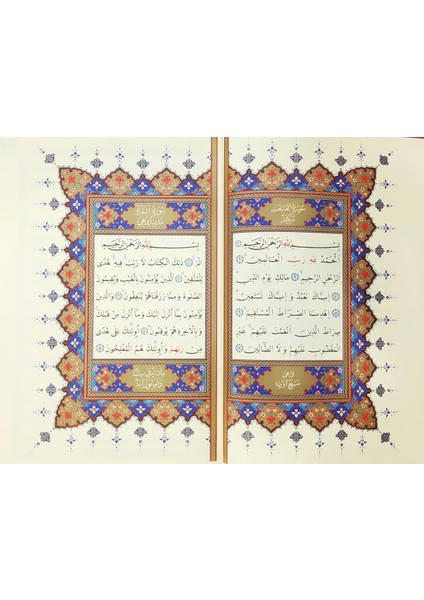 سُورَةُ الْفَاتِحَةِ
مكية
بِسْمِ اللهِ الرَّحْمٰنِ الرَّحِيمِ
اَلْحَمْدُ لِلّٰهِ رَبِّ الْعَالَمِينَ
اَلرَّحْمٰنِ الرَّحِيمِ مَالِكِ يَوْمِ الدِّينِ
اِيَّاكَ نَعْبُدُ وَاِيَّاكَ نَسْتَعِينُ
اِهْدِنَا الصِّرَاطَ الْمُسْتَقِيمَ
صِرَاطَ الَّذِينَ اَنْعَمْتَ عَلَيْهِمْ غَيْرِ
الْمَغْضُوبِ عَلَيْهِمْ وَلَا الضَّالِّينَ
وهي
سبع آيات
سُورَةُ الْبَقَرَةِ
مدنية وهي
بِسْمِ اللهِ الرَّحْمٰنِ الرَّحِيمِ
الٓمٓ ذٰلِكَ الْكِتَابُ لَا رَيْبَ فِيهِ هُدًى
لِلْمُتَّقِينَ اَلَّذِينَ يُؤْمِنُونَ بِالْغَيْبِ وَيُقِيمُونَ
الصَّلٰوةَ وَمِمَّا رَزَقْنَاهُمْ يُنْفِقُونَ وَالَّذِينَ
يُؤْمِنُونَ بِمَا اُنْزِلَ اِلَيْكَ وَمَا اُنْزِلَ مِنْ قَبْلِكَ
وَبِالْاٰخِرَةِ هُمْ يُوقِنُونَ اُولٰٓئِكَ عَلٰى هُدًى
مِنْ رَبِّهِمْ وَاُولٰٓئِكَ هُمُ الْمُفْلِحُونَ